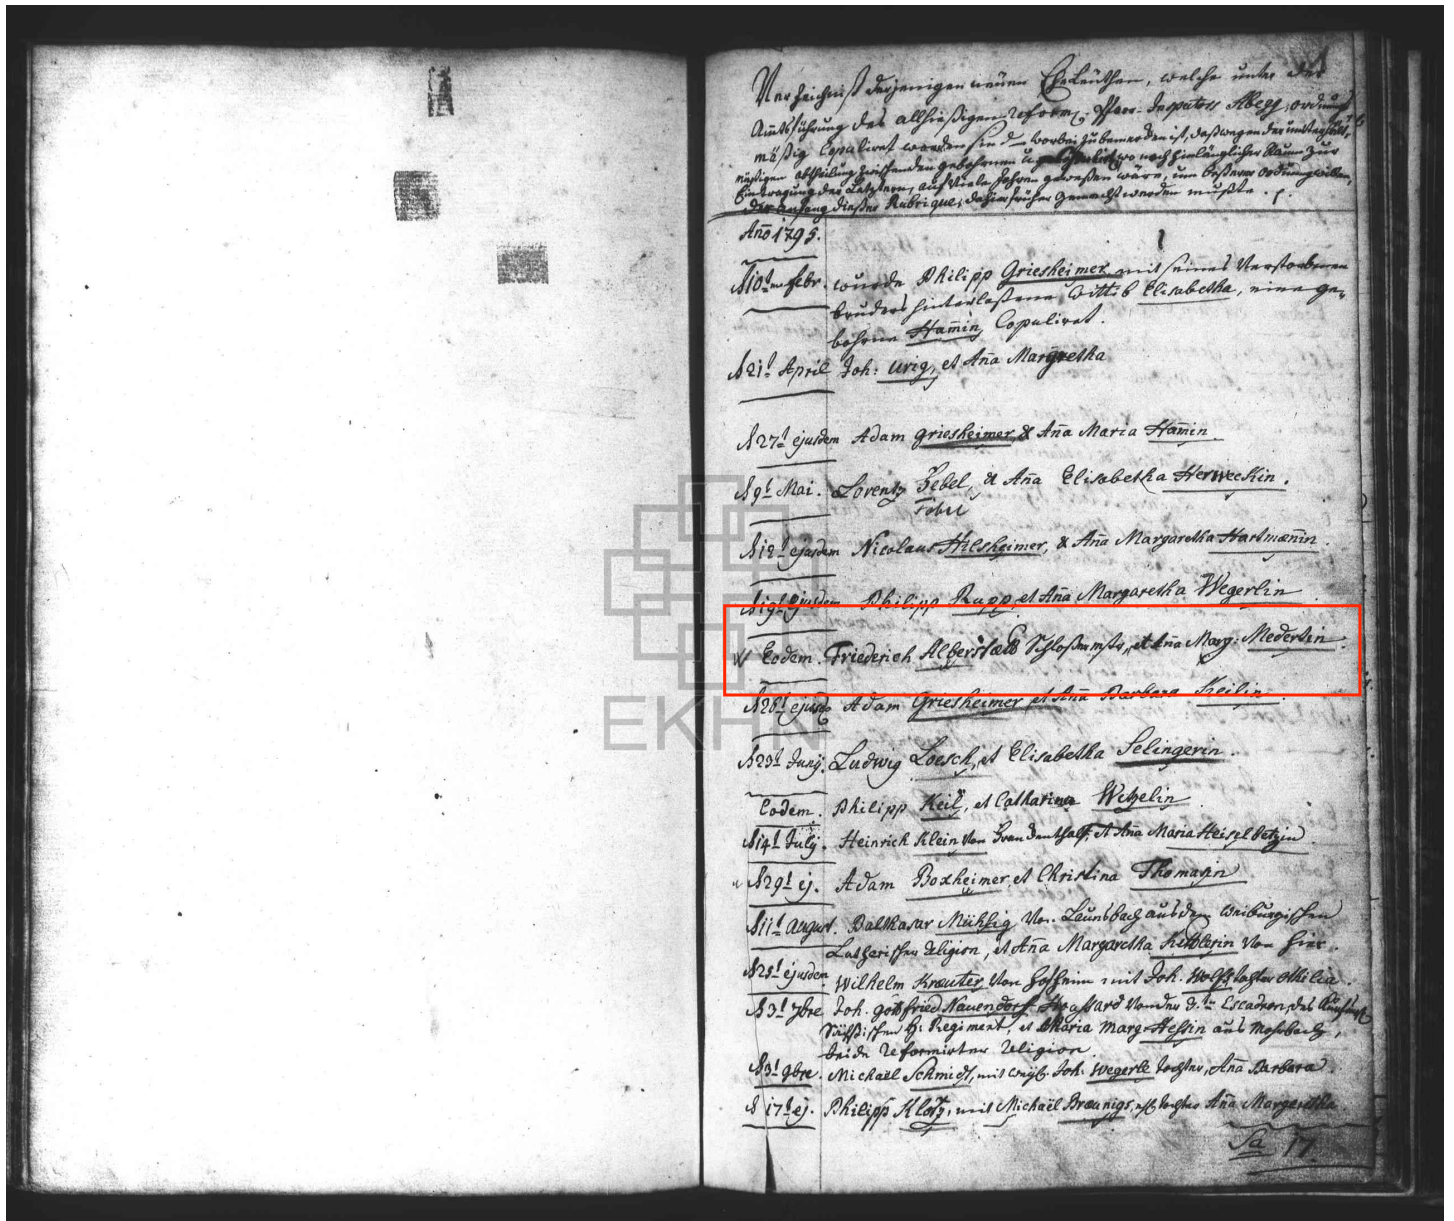 1
Verzeichniß derjenigen neuen Eheleüthen, welche unter der
Amtsführung des allhießigen reform. Pfarr- Inspectors Abegg, ordnungs
mäßig Copuliret worden sind, wobei zu bemercken ist, daß wegen der
abtheilung zwischen den gebohrnen u. wo noch hinlänglicher Raum zur
Eintragung der Letztern, auf viele Jahre gewesen wäre, um beßerer ordnung willen,
der anfang dießer Rubrique, dahier früher gemacht werden mußte.
Año 1795.
1
d 10ten Febr. wurde Philipp Griesheimer, mit seines Verstorbenen
bruders hinterlaßene Wittib Elisabetha, eine ge-
bohrne Ham̄in, Copuliret.
d 21t April Joh: Urig, et Ana Margretha
d 27t ejusdem Adam Griesheimer & Ana Maria Ham̄in
d 9t Mai. Lorentz Zebel, & Ana Elisabetha Herweckin.
Fobel
d 12t ejusdem Nicolaus Hilsheimer, & Ana Margaretha Hartmænin.
d 19t Ejusdem Philipp Rupp, et Ana Margaretha Wegerlin
Eodem. Friederich Schloßermstr, et Ana Marg. Mederlin.
d 26t ejusd Adam Griesheimer et Ana Barbara Keilin.
d 23t Junij. Ludwig Loesch, et Elisabetha Selingerin.
Eodem. Philipp Keil, et Catharina Wetzelin
d 14t Julij. Heinrich Klein von et Ana Maria Heiselbetzin
d 29t ej. Adam Boxheimer et Christina Thomasin
d 11t August. Balthasar Mühlig von Launsbach aus dem weilburgischen
Lutherischer religion, et Ana Margaretha Kettlerin von hier.
d 25t ejusdem Wilhelm Kreuter von Hofheim mit Joh. Wolfs tochter Otilia.
d 3t 7bre Joh. Gottfried Nauendorf Houssard von der Escadron, des
Sächßischen H: Regiment, et Maria Marg. Heßin aus Mosbach,
beide reformirter religion.
d 3t 9bre. Michaël Schmidt, mit weyl. Joh. Wegerle tochter, Ana Barbara
d 17t ej. Philipp Klotz, mit Michaël Bræunigs, tochter Ana Margaretha
Sa 17.
EKHN